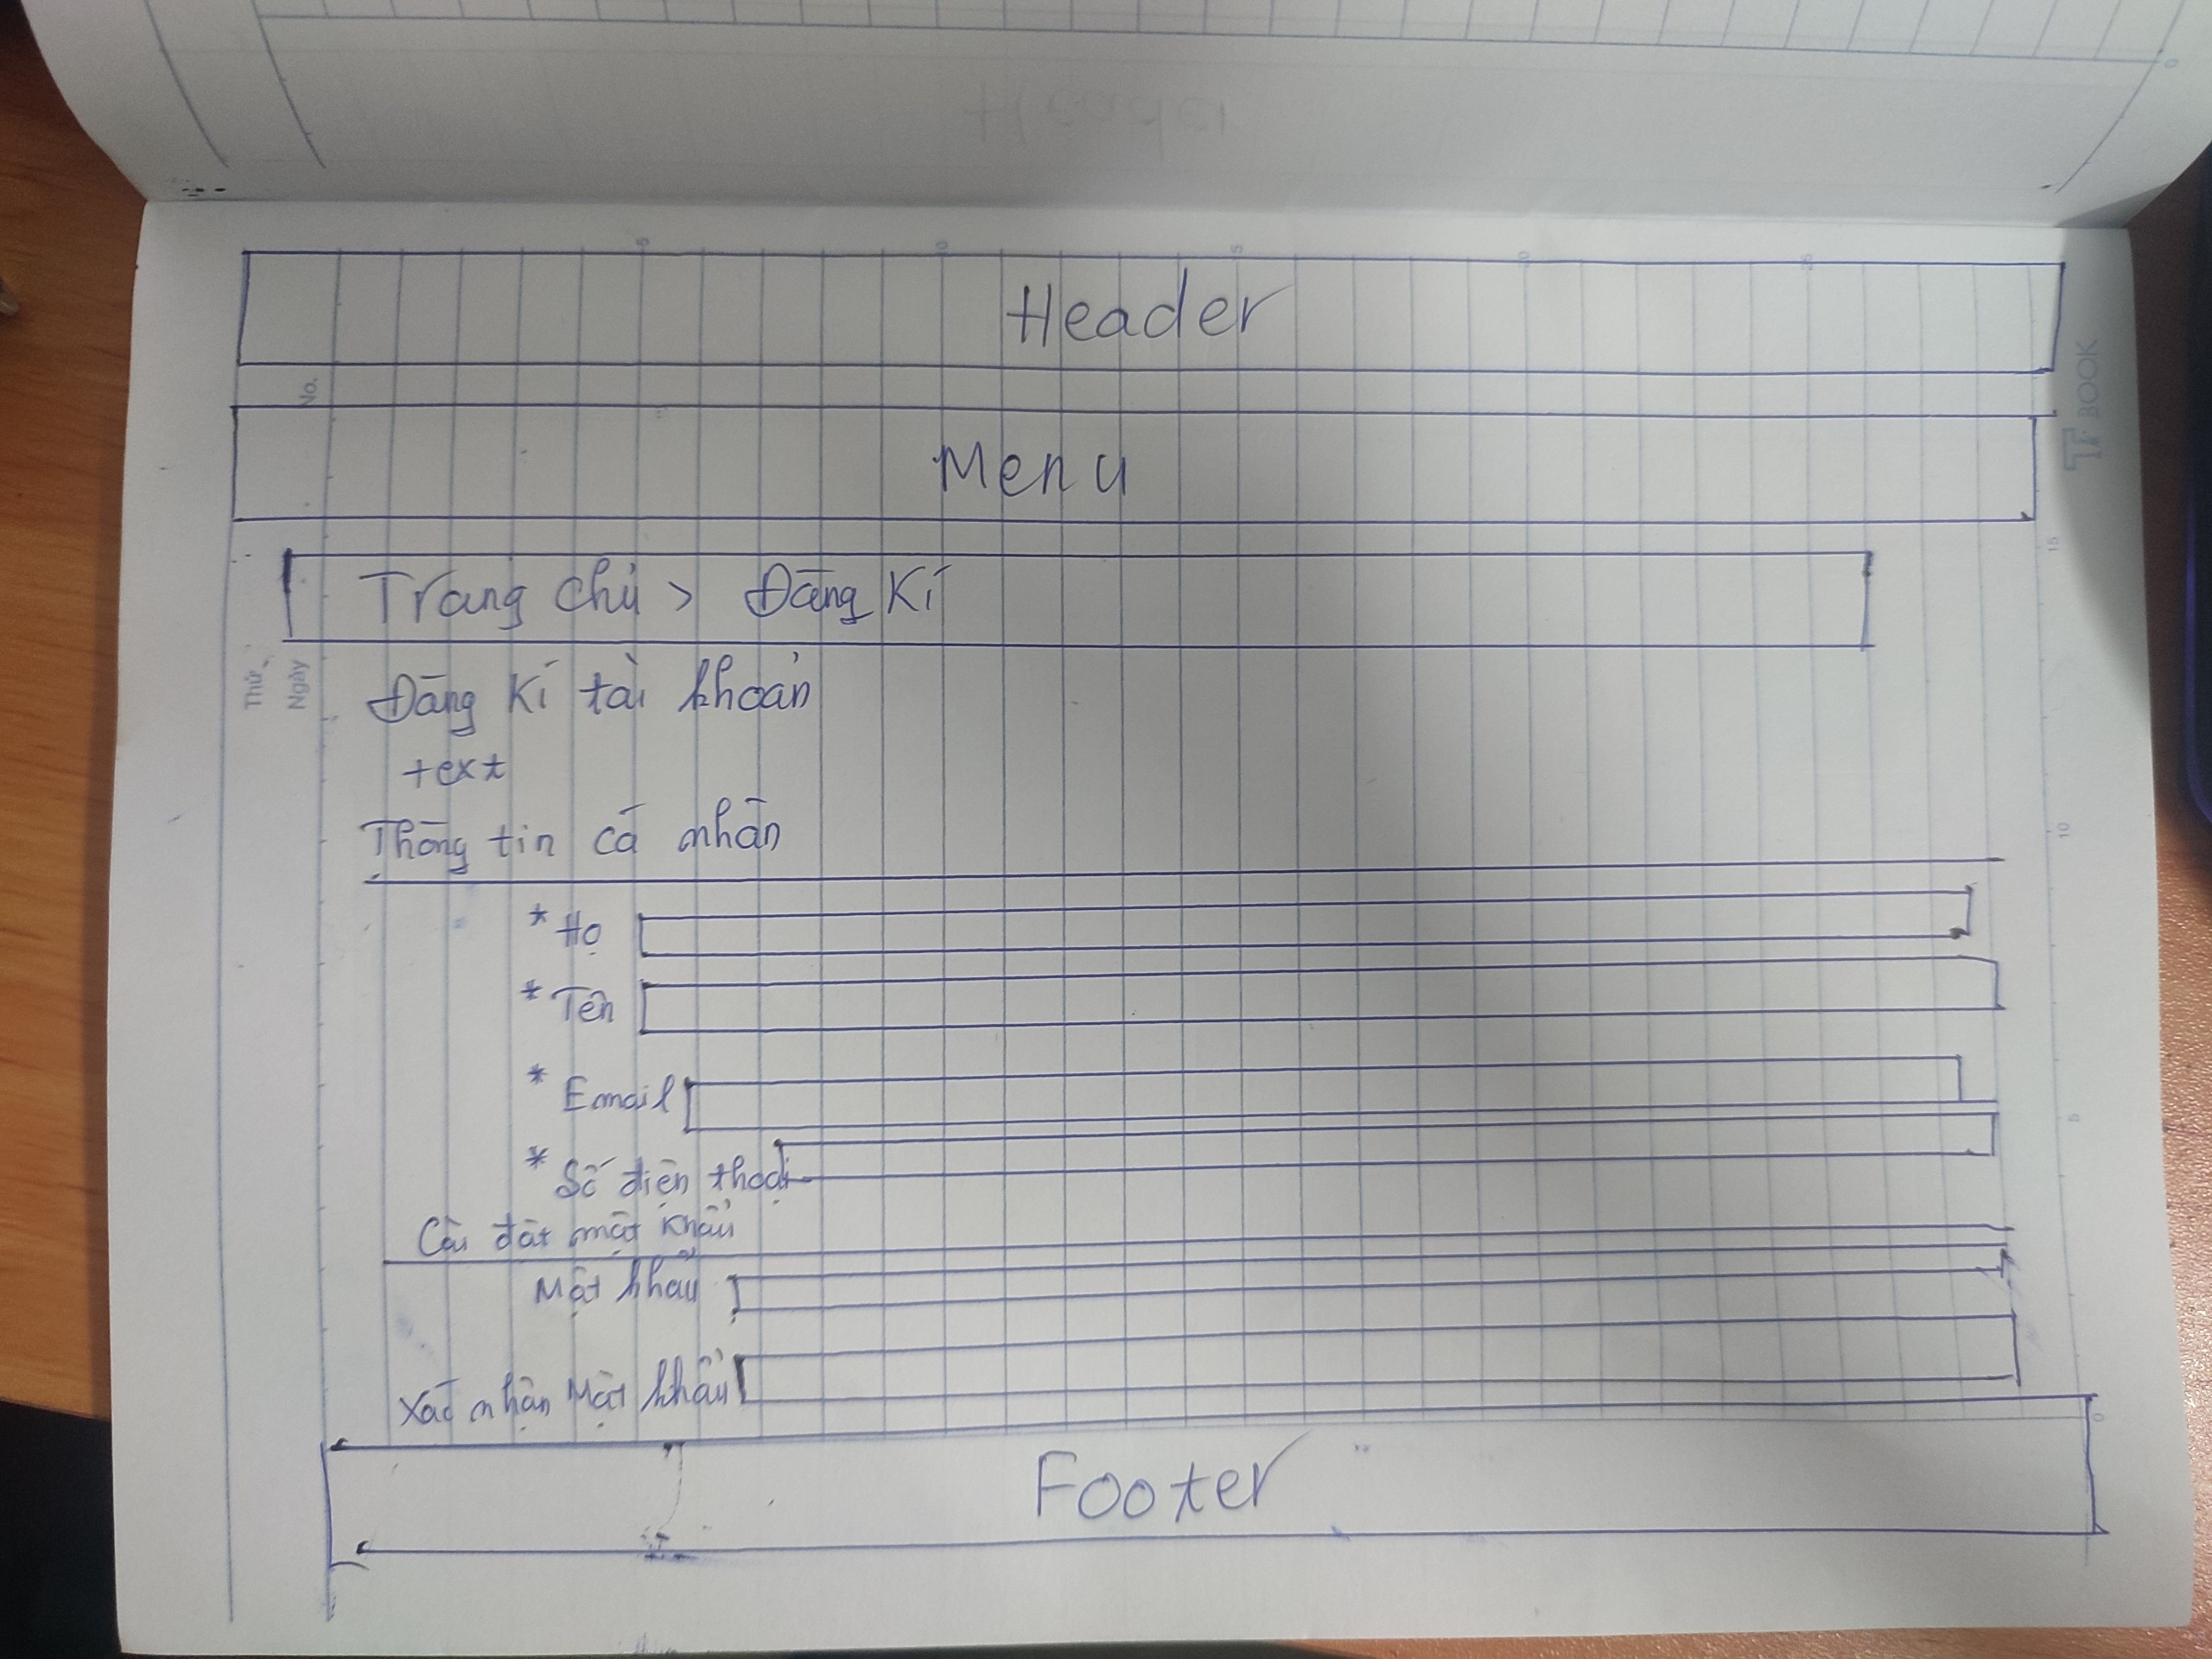 Header
Header
No.
TP BOOK
Menu
Trang chủ > Đăng Kí
Thứ
Ngày
Đăng Kí tài khoản
text
Thông tin cá nhân
* Họ
* Tên
* Email
* Số điện thoại
Cài đặt mật khẩu
Mật khẩu
Xác nhận Mật khẩu
Footer
5
10
15
20
25
15
10
5
0
0